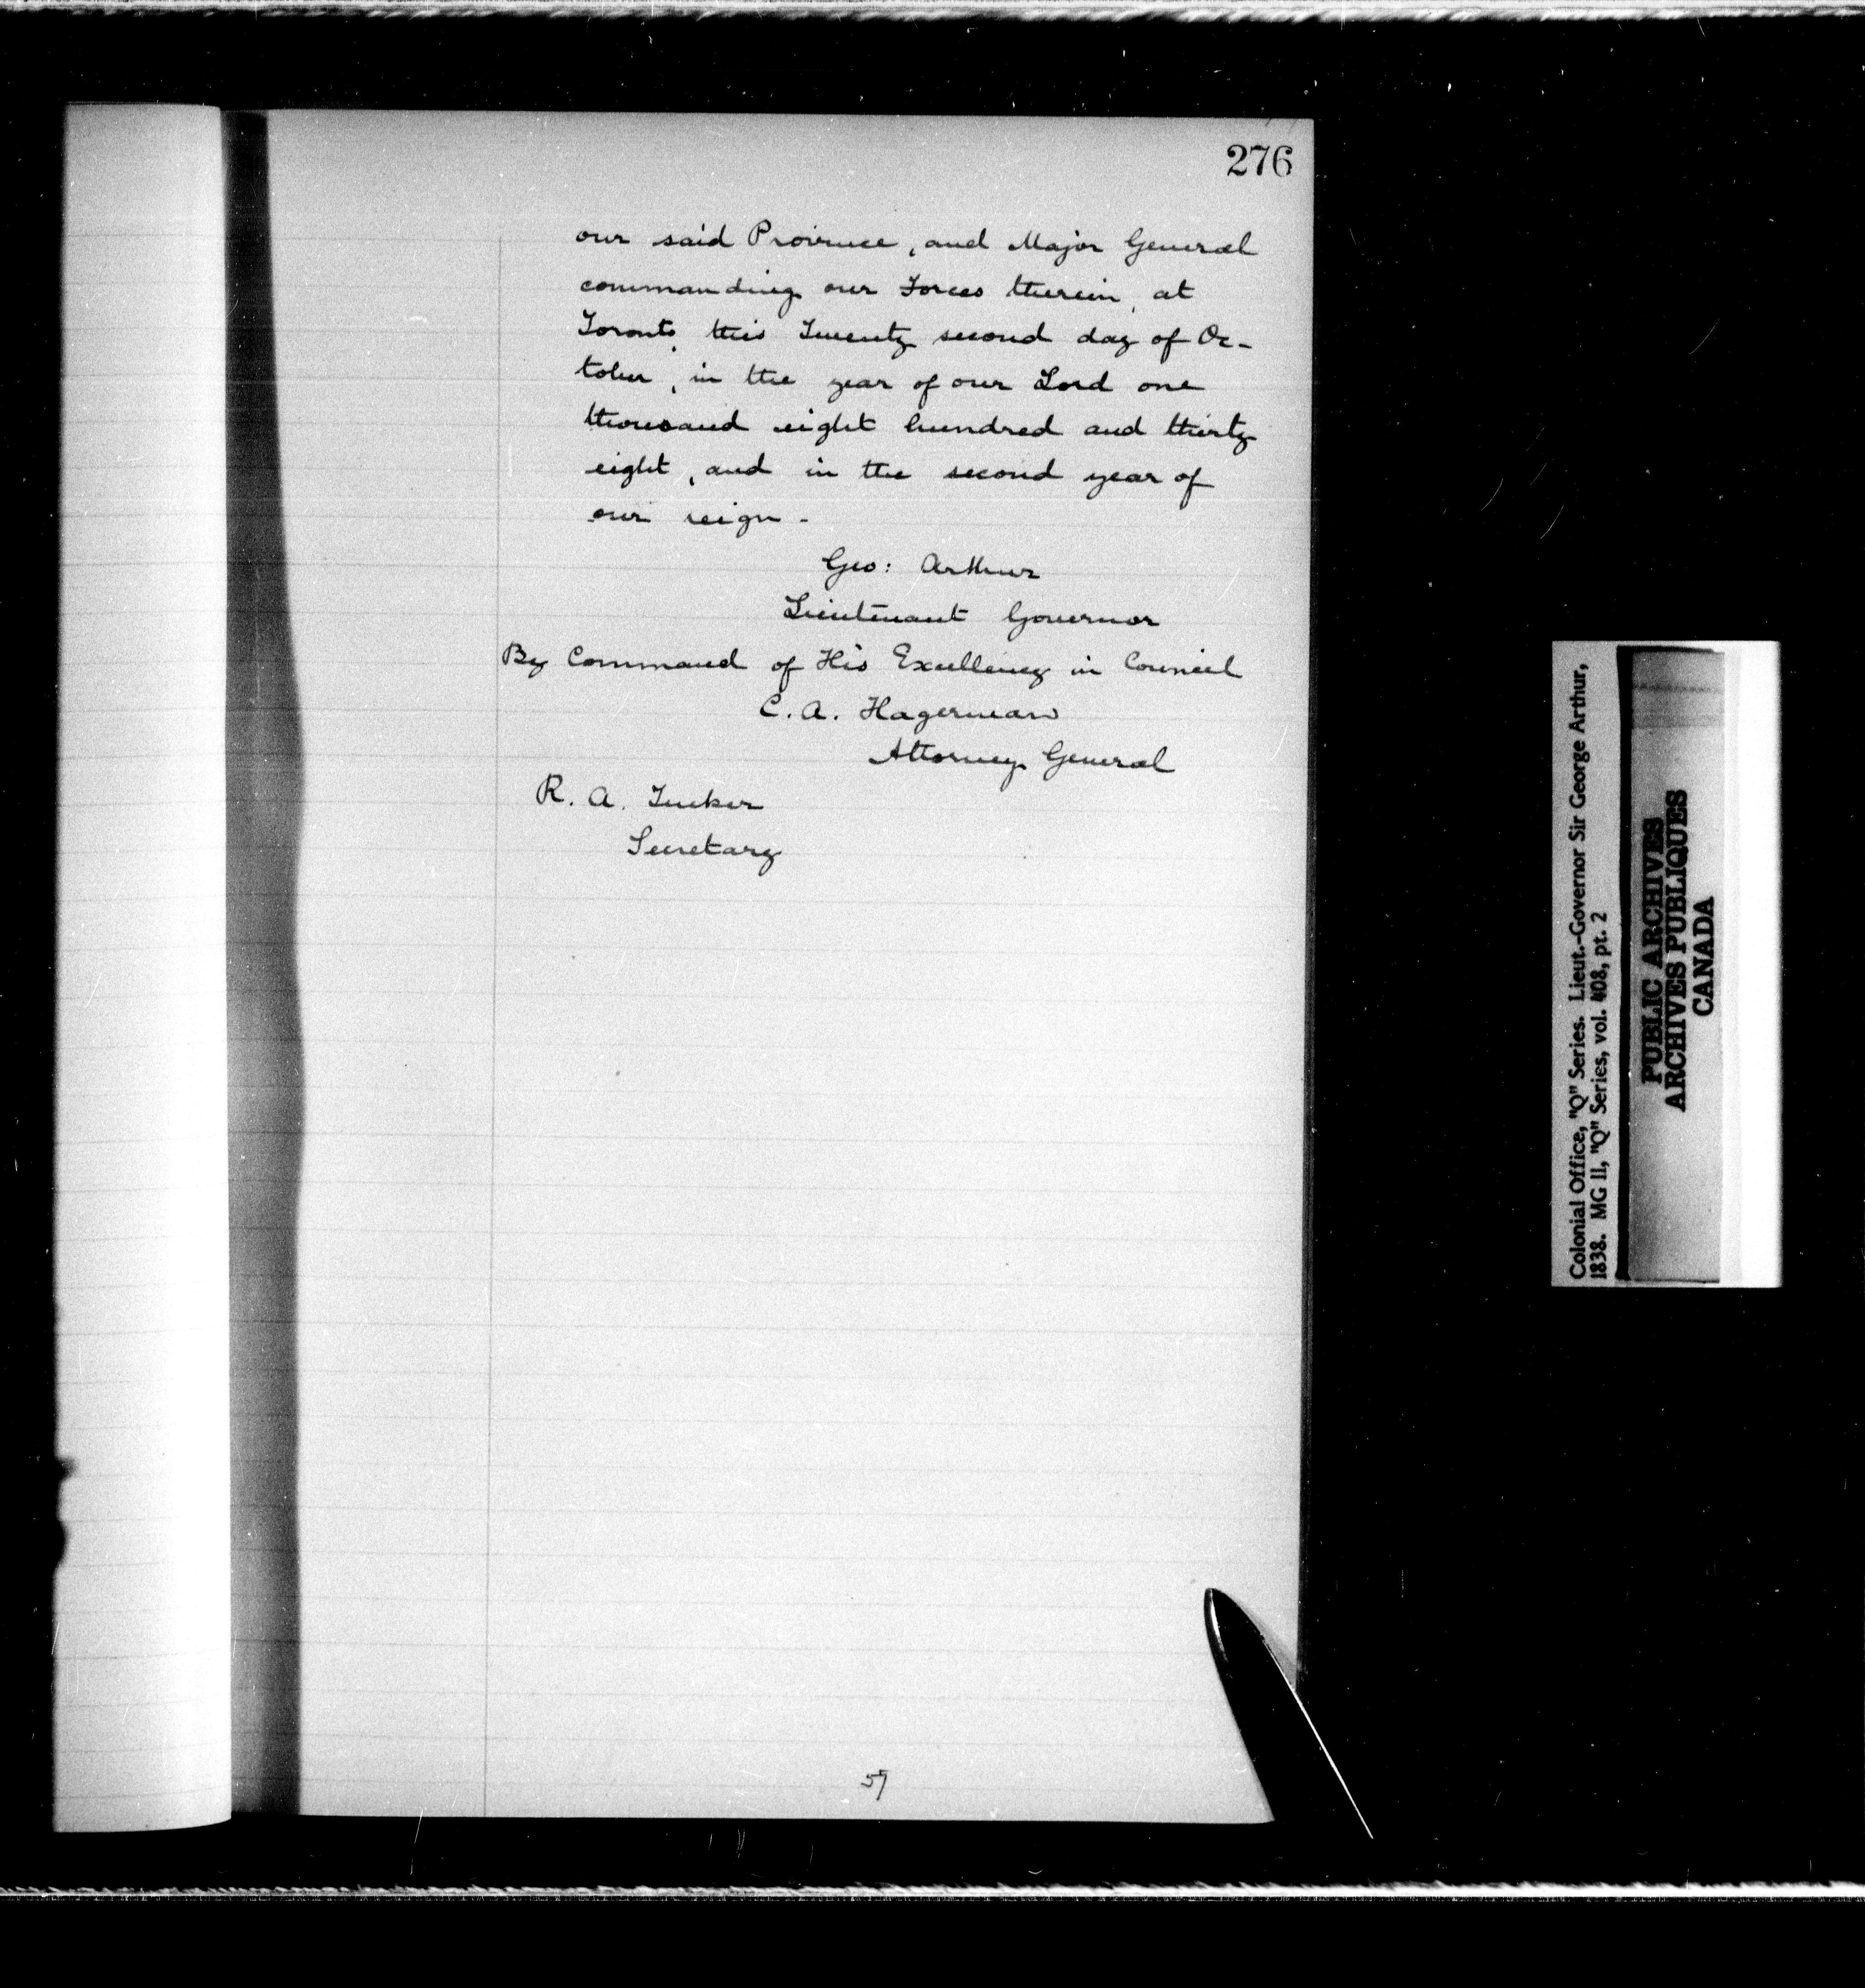 276
our said Province, and Major General
commanding our Forces therein, at
Toronto, this Twenty second day of Oc-
tober, in the year of our Lord one
thousand eight hundred and thirty
eight, and in the second year of
our reign -
Geo: Arthur
Lieutenant Governor
By Command of His Excellency in Council
C. A. Hagerman
Attorney General
R. A. Tucker
Secretary
57
Colonial Office, "Q" Series. Lieut.-Governor Sir George Arthur,
1838. MG 11, "Q" Series, vol. 408, pt. 2
PUBLIC ARCHIVES
ARCHIVES PUBLIQUES
CANADA